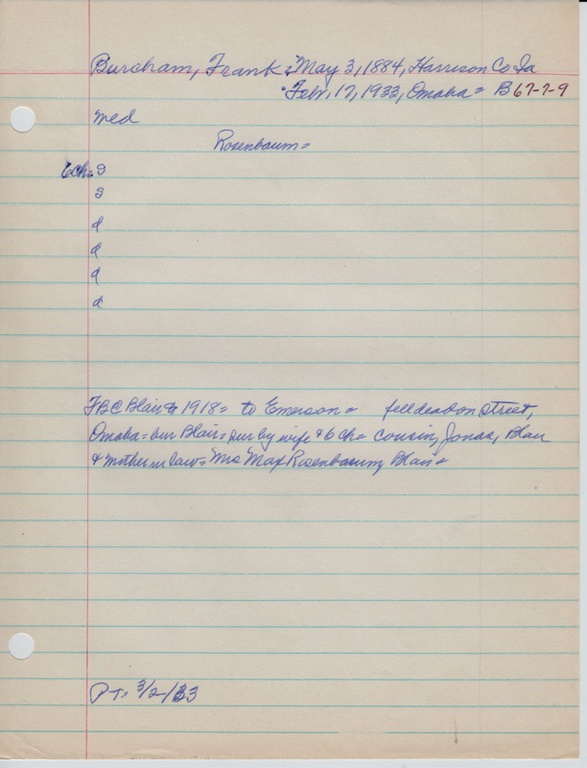 Burcham, Frank = May 3, 1884, Harrison Co Ia
Feb. 17, 1933, Omaha = B 67-7-9
med
Rosenbaum =
6 ch = s
s
d
d
d
d
FBC Blair 1918 = to Emerson = fell dead on street,
Omaha = bur Blair = sur by wife & 6 ch = cousin, Jonas, Blair
& mother in law = Mrs Max Rosenbaum, Blair =
PT = 3/2/33